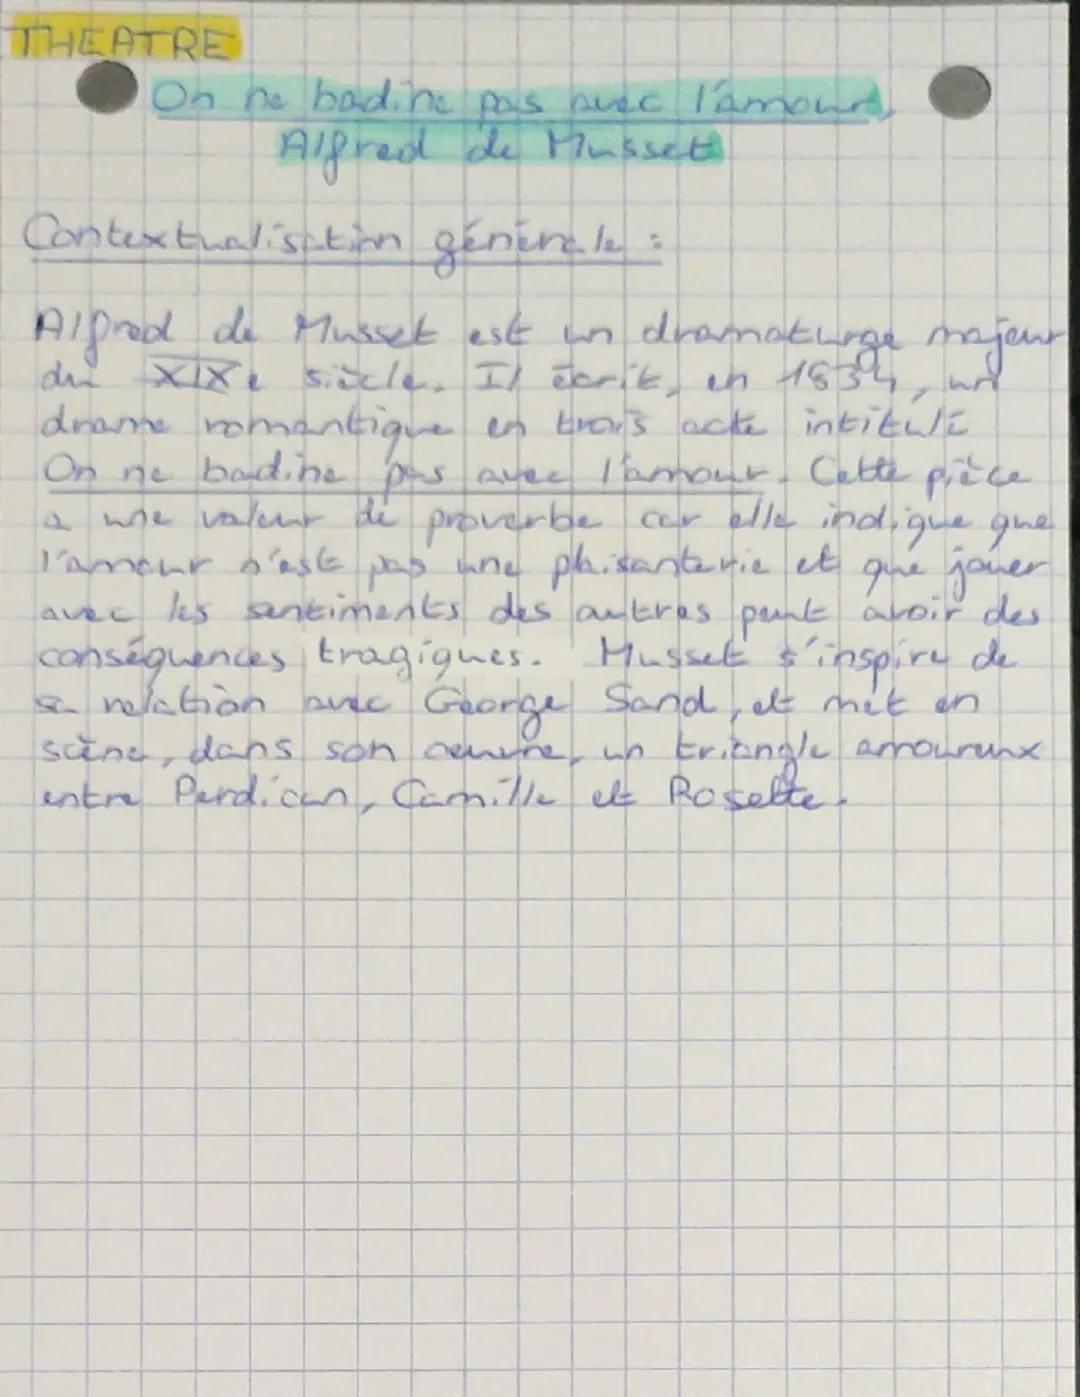 THEATRE
On ne badine pas avec l'amour,
Alfred de Musset
Contextualisation générale :
Alfred de Musset est un dramaturge majeur
du XIXe siècle. Il écrit, en 1834, un
drame romantique en trois acte intitulé
On ne badine pas avec l'amour. Cette pièce
a une valeur de proverbe car elle indique que
l'amour n'est pas une plaisanterie et que jouer
avec les sentiments des autres peut avoir des
conséquences tragiques. Musset s'inspire de
sa relation avec George Sand, et met en
scène, dans son oeuvre, un triangle amoureux
entre Perdican, Camille et Rosette.